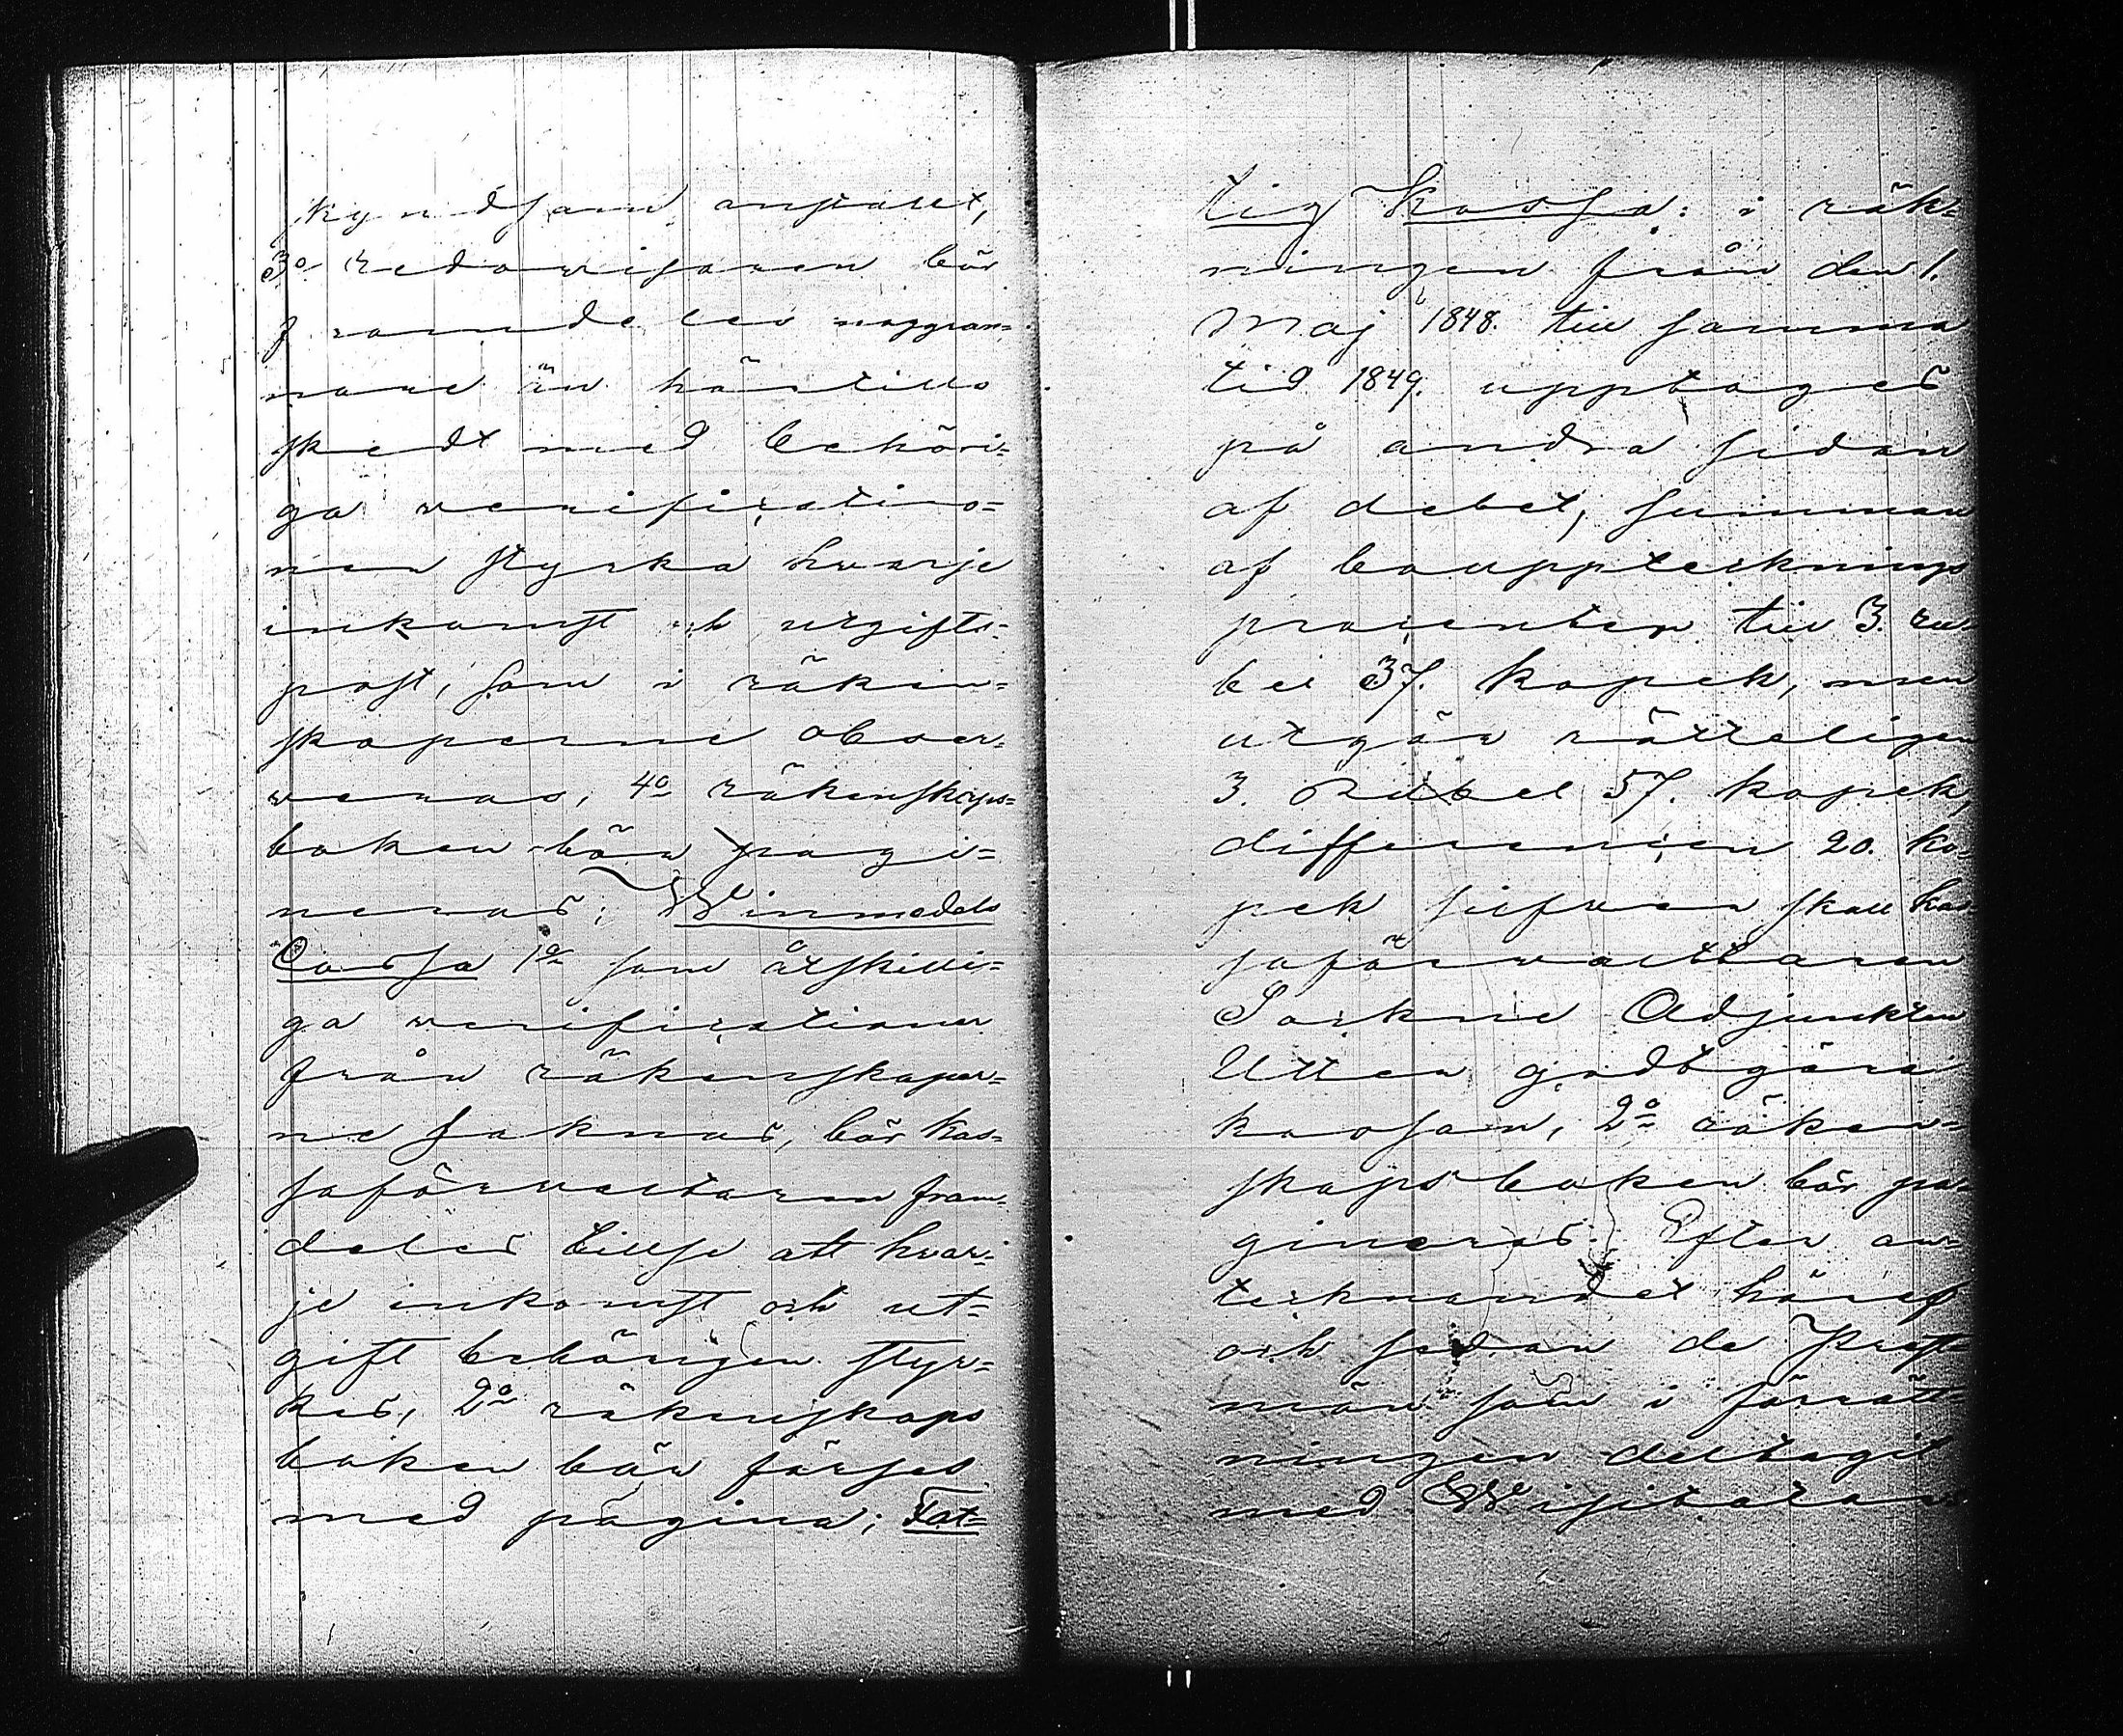 skyndsamt anstallt,
3o Redovisaren bör
framdeles noggran=
nare än härtills
skedt med behöri=
ga verificatio=
ner styrka hvarje
inkomst och utgifts=
post, som i räken=
skaperne obser=
veras, 4o räkenskaps=
boken bör pagi=
neras; Winmedels
Cassa 1o som åtskilli=
ga verificationer
från räkenskaper=
ne saknas, bör kas=
saförvaltaren fram=
deles tillse att hvar=
je inkomst och ut=
gift behörigen styr=
kes, 2o räkenskaps
boken bör förses
med pagina; Fat=
tig Kassa: i räk=
ningen från den 1.
Maj 1848. till samma
tid 1849. upptages
på andra sidan
af debet, summan
af bouppteknings
procenten till 3. ru=
bel 37. kopek, men
utgör rätteligen
3. Rubel 57. kopek,
differencen 20. ko=
pek silfver skall kas=
saförvaltaren
Sockne Adjunkten
Utter godtgöra
kassan, 2o räken=
skapsboken bör pa=
gineras. Efter an=
teknandet häraf
och sedan de Prest=
män som i förrätt=
ningen deltagit
med Wisitatorn